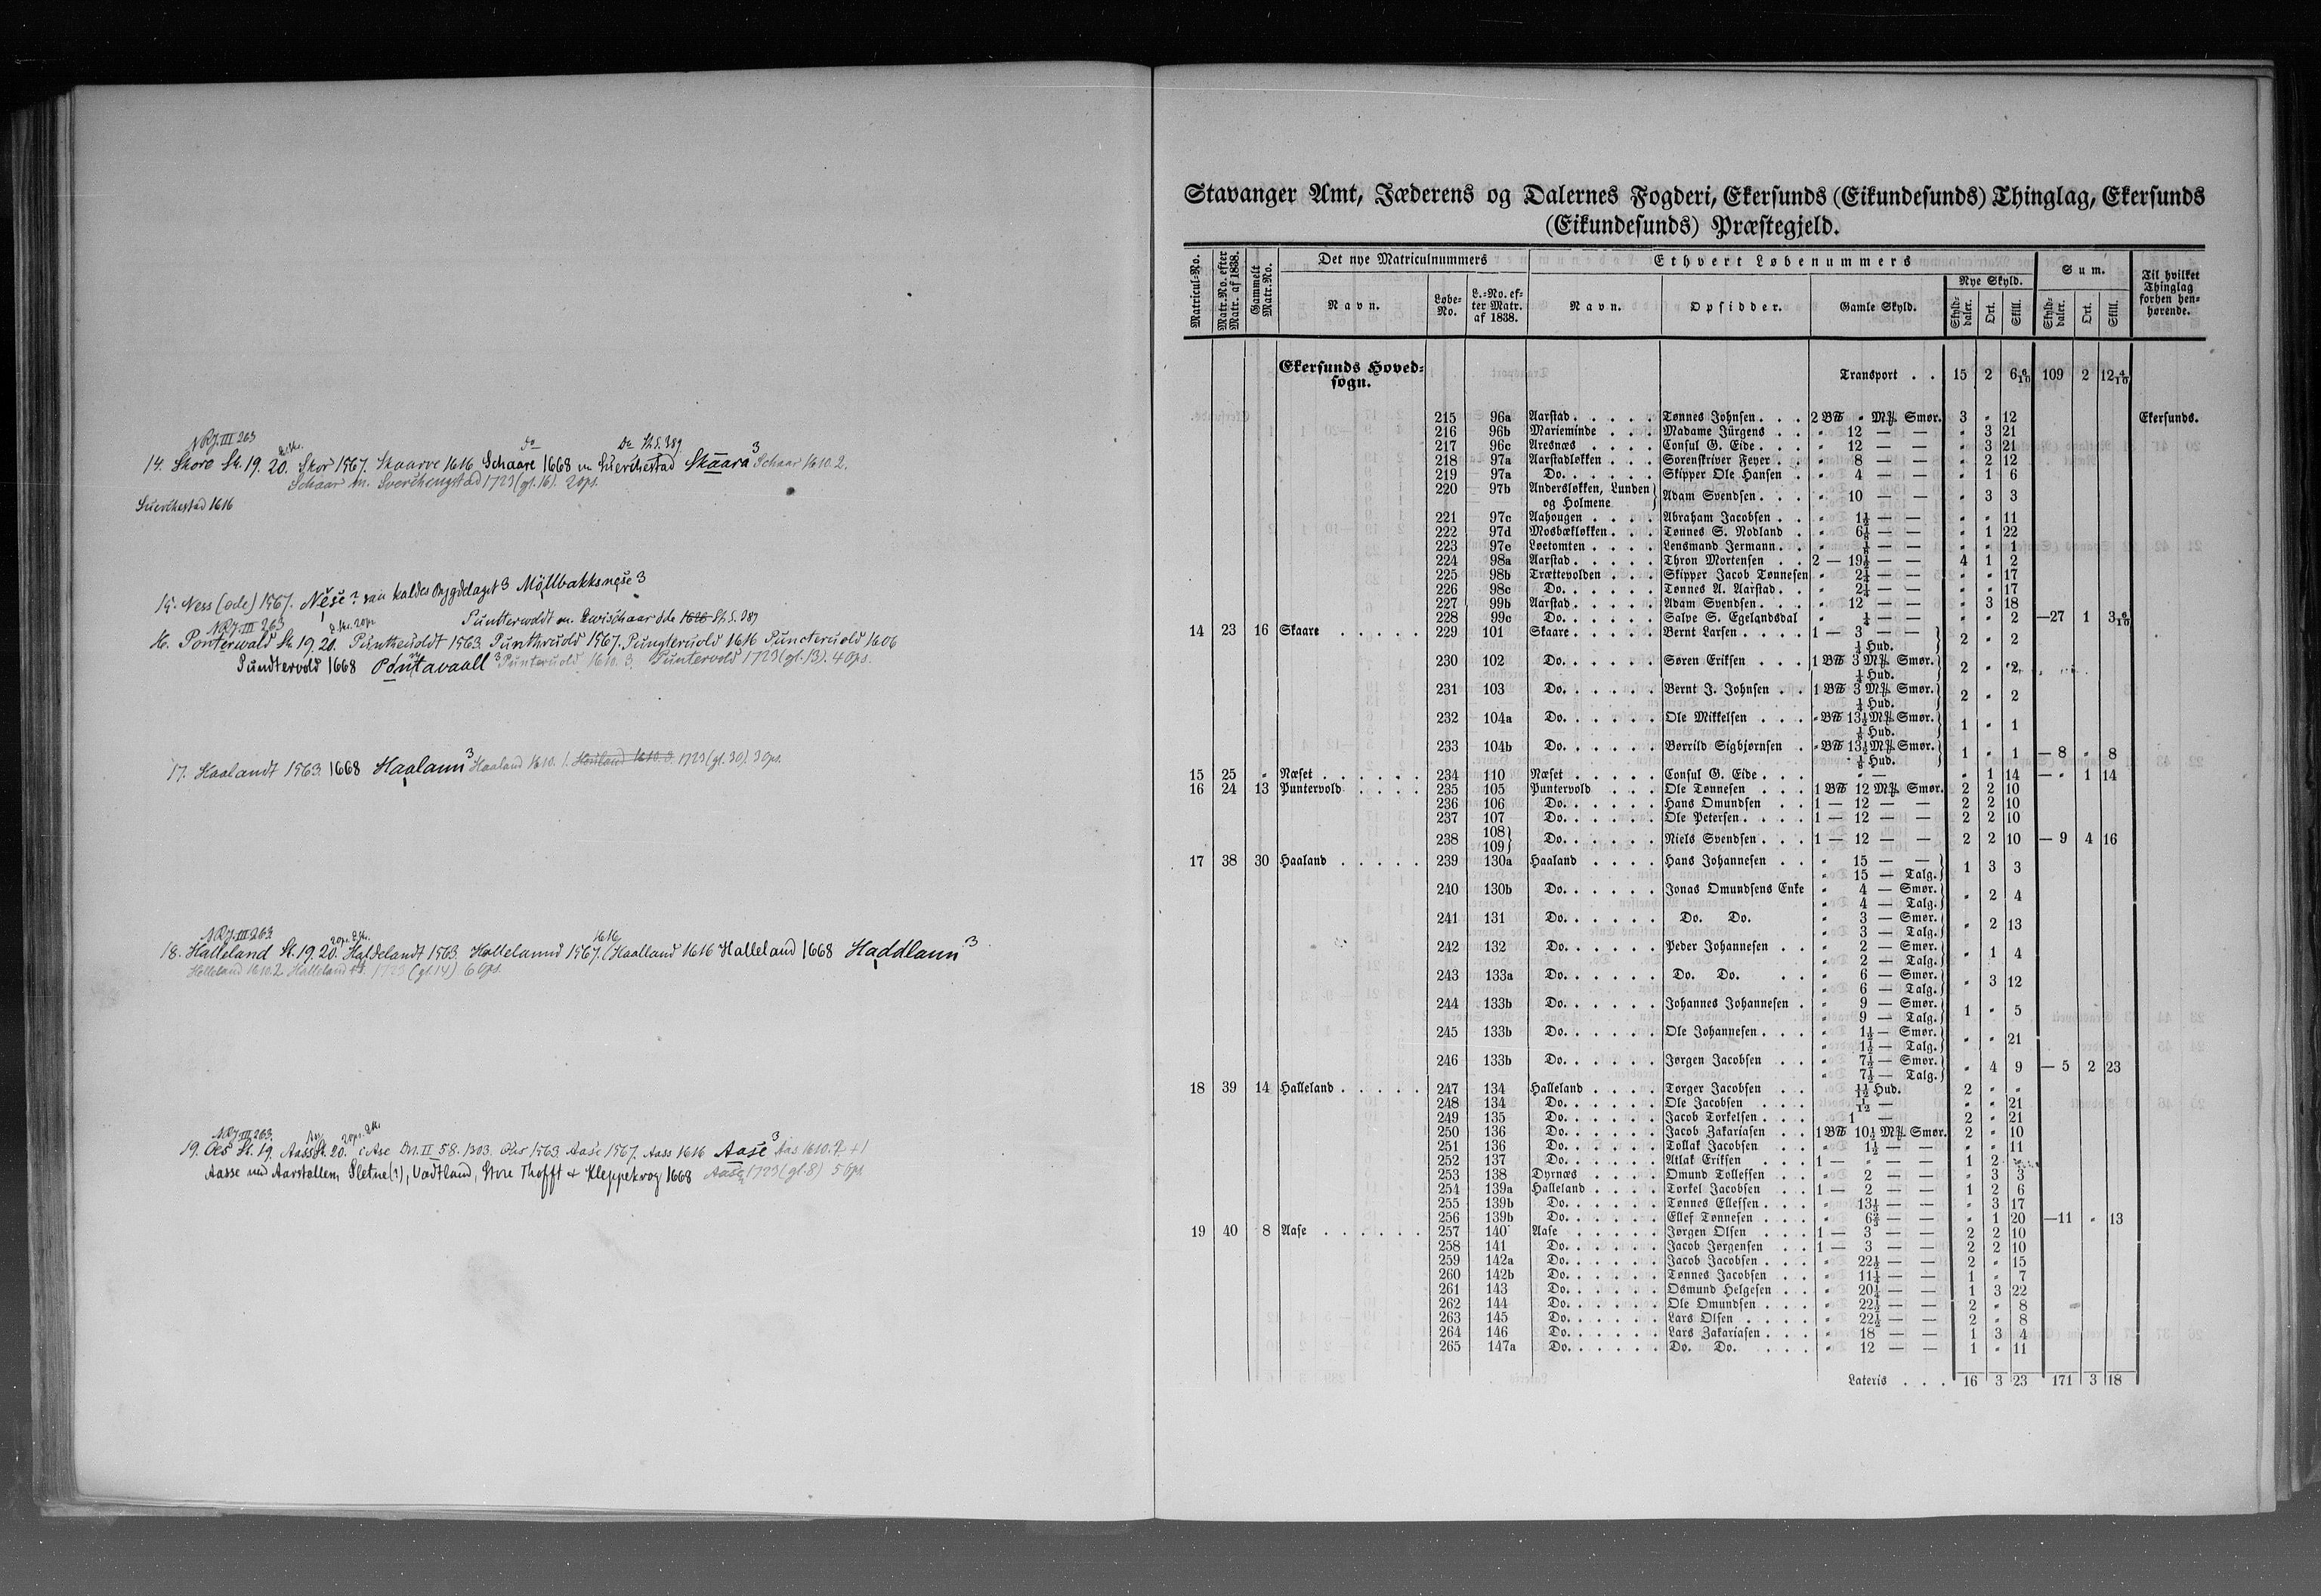 NRJ. III 263
14. Skoro St. 19. 20. Skor 1567. Skaarve 1616 Schaare 1668 m Suerchestad Skaara 3 Schaar 1610. 2.
Schaar m. Sverchengstad 1723 (gl. 16). 2 Ops.
Suerchestad 1616
15. Ness (øde) 1567. Nese? kaldes Bygdelaget 3 Möllbakksnese 3
Puntterwoldt m. Qvrischaar øde St. S. 389
NRJ. III 263
16. Ponterwald St. 19. 20. Puntheuoldt 1563. Punthruold 1567. Pungteruold 1616 Puncteruold 1606
Pundtervold 1668 Pontavaall 3 Punteruold 1610. 3. Puntervold 1723 (gl. 13). 4 Ops.
17. Haalandt 1563. 1668 Haalann 3 Haaland 1610. 1. 1723 (gl. 30) 3 Ops.
NRJ. III 263
18. Halleland St. 19. 20. Haldelandt 1563. Hallelannd 1567. (Haalland 1616 Halleland 1668 Haddlann 3
Helleland 1610. 2 Halleland 1723 (gl. 14) 6 Ops.
NRJ. III 263.
19. Oes St. 19. Aass St. 20. i Ase DN. II 58. 1303. Oes 1563 Aase 1567. Aass 1616 Aase 3 Aas 1610. 7 + 1
Aasse med Aarstallem, Sletne (?), Vadtland, Store Thofft & Kleppekrog 1668 Aase 1723 (gl. 8) 5 Ops.
Stavanger Amt, Jæderens og Dalernes Fogderi, Ekersunds (Eikundesunds) Thinglag, Ekersunds
(Eikundesunds) Præstegjeld.
Matricul-No. Matr.No. efter Matr. af 1838. Gammelt Matr.No. Det nye Matriculnummers Ethvert Løbenummers Sum. Til hvilket Thinglag forhen henhørende.
Navn. Løbe-No. L.-No. efter Matr. af 1838. Navn. Opsidder. Gamle Skyld. Nye Skyld. Skylddaler. Ort. Skill. Skylddaler. Ort. Skill.
Ekersunds Hovedsogn. Transport . . 15 2 6 6/10 109 2 12 4/10
215 96a Aarstad . . . . . Tønnes Johnsen . . . 2 B℔ " M℔. Smør. 3 " 12 Ekersunds.
216 96b Marieminde . . . Madame Jürgens . . " 12 — — " 3 21
217 96c Aresnæs . . . . Consul G. Eide . . . " 12 — — " 3 21
218 97a Aarstadløkken . . . Sorenskriver Feyer . . " 8 — — " 2 12
219 97a Do. . . . . . Skipper Ole Hansen . " 4 — — " 1 6
220 97b Andersløkken, Lunden og Holmene } Adam Svendsen . . . " 10 — — " 3 3
221 97c Aahougen . . . . Abraham Jacobsen . . " 1½ — — " " 11
222 97d Mosbækløkken . . . Tønnes S. Nodland . " 6⅛ — — " 1 22
223 97e Løetomten . . . . Lensmand Jermann . . " ⅛ — — " " 1
224 98a Aarstad . . . . . Thron Mortensen . . 2 — 19½ — — 4 1 2
225 98b Trættevolden . . . Skipper Jacob Tønnesen " 2¼ — — " " 17
226 98c Do. . . . . . Tønnes A. Aarstad . . " 2¼ — — " " 17
227 99b Aarstad . . . . . Adam Svendsen . . . " 12 — — " 3 18
228 99c Do. . . . . . Salve S. Egelandsdal " ¼ — — " " 2 —27 1 3 6/10
14 23 16 Skaare . . . . . 229 101 Skaare . . . . . Bernt Larsen . . . . 1 — 3 — — ¼ Hud. } 2 " 2
230 102 Do. . . . . . Søren Eriksen . . . 1 B℔ 3 M℔. Smør. ¼ Hud. } 2 " 2
231 103 Do. . . . . . Bernt J. Johnsen . . 1 B℔ 3 M℔. Smør. ¼ Hud. } 2 " 2
232 104a Do. . . . . . Ole Mikkelsen . . . " B℔ 13½ M℔. Smør. ⅛ Hud. } 1 " 1
233 104b Do. . . . . . Børrild Sigbjørnsen . " B℔ 13½ M℔. Smør. ⅛ Hud. } 1 " 1 — 8 " 8
15 25 " Næset . . . . . . 234 110 Næset . . . . . Consul G. Eide . . . " — " 1 14 — " 1 14
16 24 13 Puntervold . . . . 235 105 Puntervold . . . Ole Tønnesen . . . 1 B℔ 12 M℔. Smør. 2 2 10
236 106 Do. . . . . . Hans Omundsen . . 1 — 12 — — 2 2 10
237 107 Do. . . . . . Ole Petersen . . . . 1 — 12 — — 2 2 10
238 108 109 } Do. . . . . . Niels Svendsen . . . 1 — 12 — — 2 2 10 — 9 4 16
17 38 30 Haaland . . . . . 239 130a Haaland . . . . Hans Johannesen . . " 15 — — " 15 — Talg. } 1 3 3
240 130b Do. . . . . . Jonas Omundsens Enke " 4 — Smør. " 4 — Talg. } " 2 4
241 131 Do. . . . . . Do. Do. " 3 — Smør. " 3 — Talg. } " 2 13
242 132 Do. . . . . . Peder Johannesen . . " 2 — Smør. " 2 — Talg. } " 1 4
243 133a Do. . . . . . Do. Do. . . " 6 — Smør. " 6 — Talg. } " 3 12
244 133b Do. . . . . . Johannes Johannesen . " 9 — Smør. " 9 — Talg. } 1 " 5
245 133b Do. . . . . . Ole Johannesen . . . " 1½ — Smør. " 1½ — Talg. } " " 21
246 133b Do. . . . . . Jørgen Jacobsen . . " 7½ — Smør. " 7½ — Talg. } " 4 9 — 5 2 23
18 39 14 Halleland . . . . . 247 134 Halleland . . . . Torger Jacobsen . . 1½ Hud. 2 " "
248 134 Do. . . . . . Ole Jacobsen . . . 1/12 — " " 21
249 135 Do. . . . . . Jacob Torkelsen . . . 1 — 2 " 21
250 136 Do. . . . . . Jacob Zakariasen . . 1 B℔ 10½ M℔. Smør. 2 " 10
251 136 Do. . . . . . Tollak Jacobsen . . " 1½ — — " " 11
252 137 Do. . . . . . Atlak Eriksen . . . 1 — " — — 1 2 "
253 138 Dyrnæs . . . . Omund Tollefsen . . " 2 — — " 3 3
254 139a Halleland . . . . Torkel Jacobsen . . 1 — 2 — — 1 2 6
255 139b Do. . . . . . Tønnes Ellefsen . . . " 13⅓ — — " 3 17
256 139b Do. . . . . . Ellef Tønnesen . . . " 6⅔ — — " 1 20 —11 " 13
19 40 8 Aase . . . . . . 257 140 Aase . . . . . Jørgen Olsen . . . 1 — 3 — — 2 2 10
258 141 Do. . . . . . Jacob Jørgensen . . 1 — 3 — — 2 2 10
259 142a Do. . . . . . Jacob Jacobsen . . . " 22½ — — 2 " 15
260 142b Do. . . . . . Tønnes Jacobsen . . " 11¼ — — 1 " 7
261 143 Do. . . . . . Osmund Helgesen . . " 20¼ — — 1 3 22
262 144 Do. . . . . . Ole Omundsen . . . " 22½ — — 2 " 8
263 145 Do. . . . . . Lars Olsen . . . . " 22½ — — 2 " 8
264 146 Do. . . . . . Lars Zakariasen . . . " 18 — — 1 3 4
265 147a Do. . . . . . Do. Do. . . . . " 12 — — 1 " 11
Lateris . . . 16 3 23 171 3 18